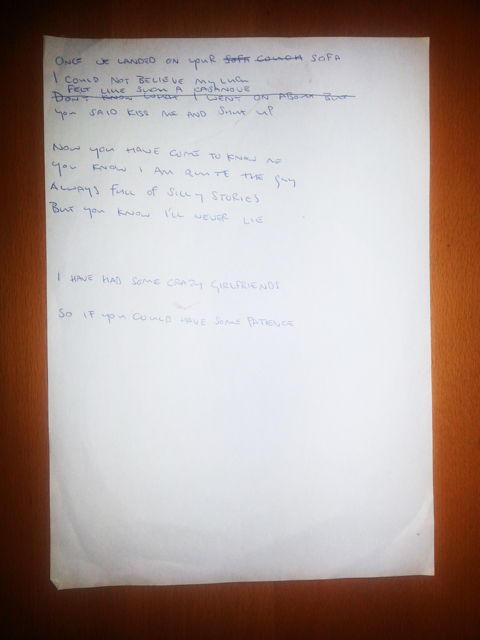 ONCE WE LANDED ON YOUR SOFT COUCH SOFA
I COULD NOT BELIEVE MY LUCK
FELT LIKE SUCH A CASANOVA
DON'T KNOW I WENT ON ABOUT BUT
YOU SAID KISS ME AND SHUT UP
NOW YOU HAVE COME TO KNOW ME
YOU KNOW I AM QUITE THE GUY
ALWAYS FULL OF SILLY STORIES
BUT YOU KNOW I'LL NEVER LIE
I HAVE HAD SOME CRAZY GIRLFRIENDS
SO IF YOU COULD HAVE SOME PATIENCE